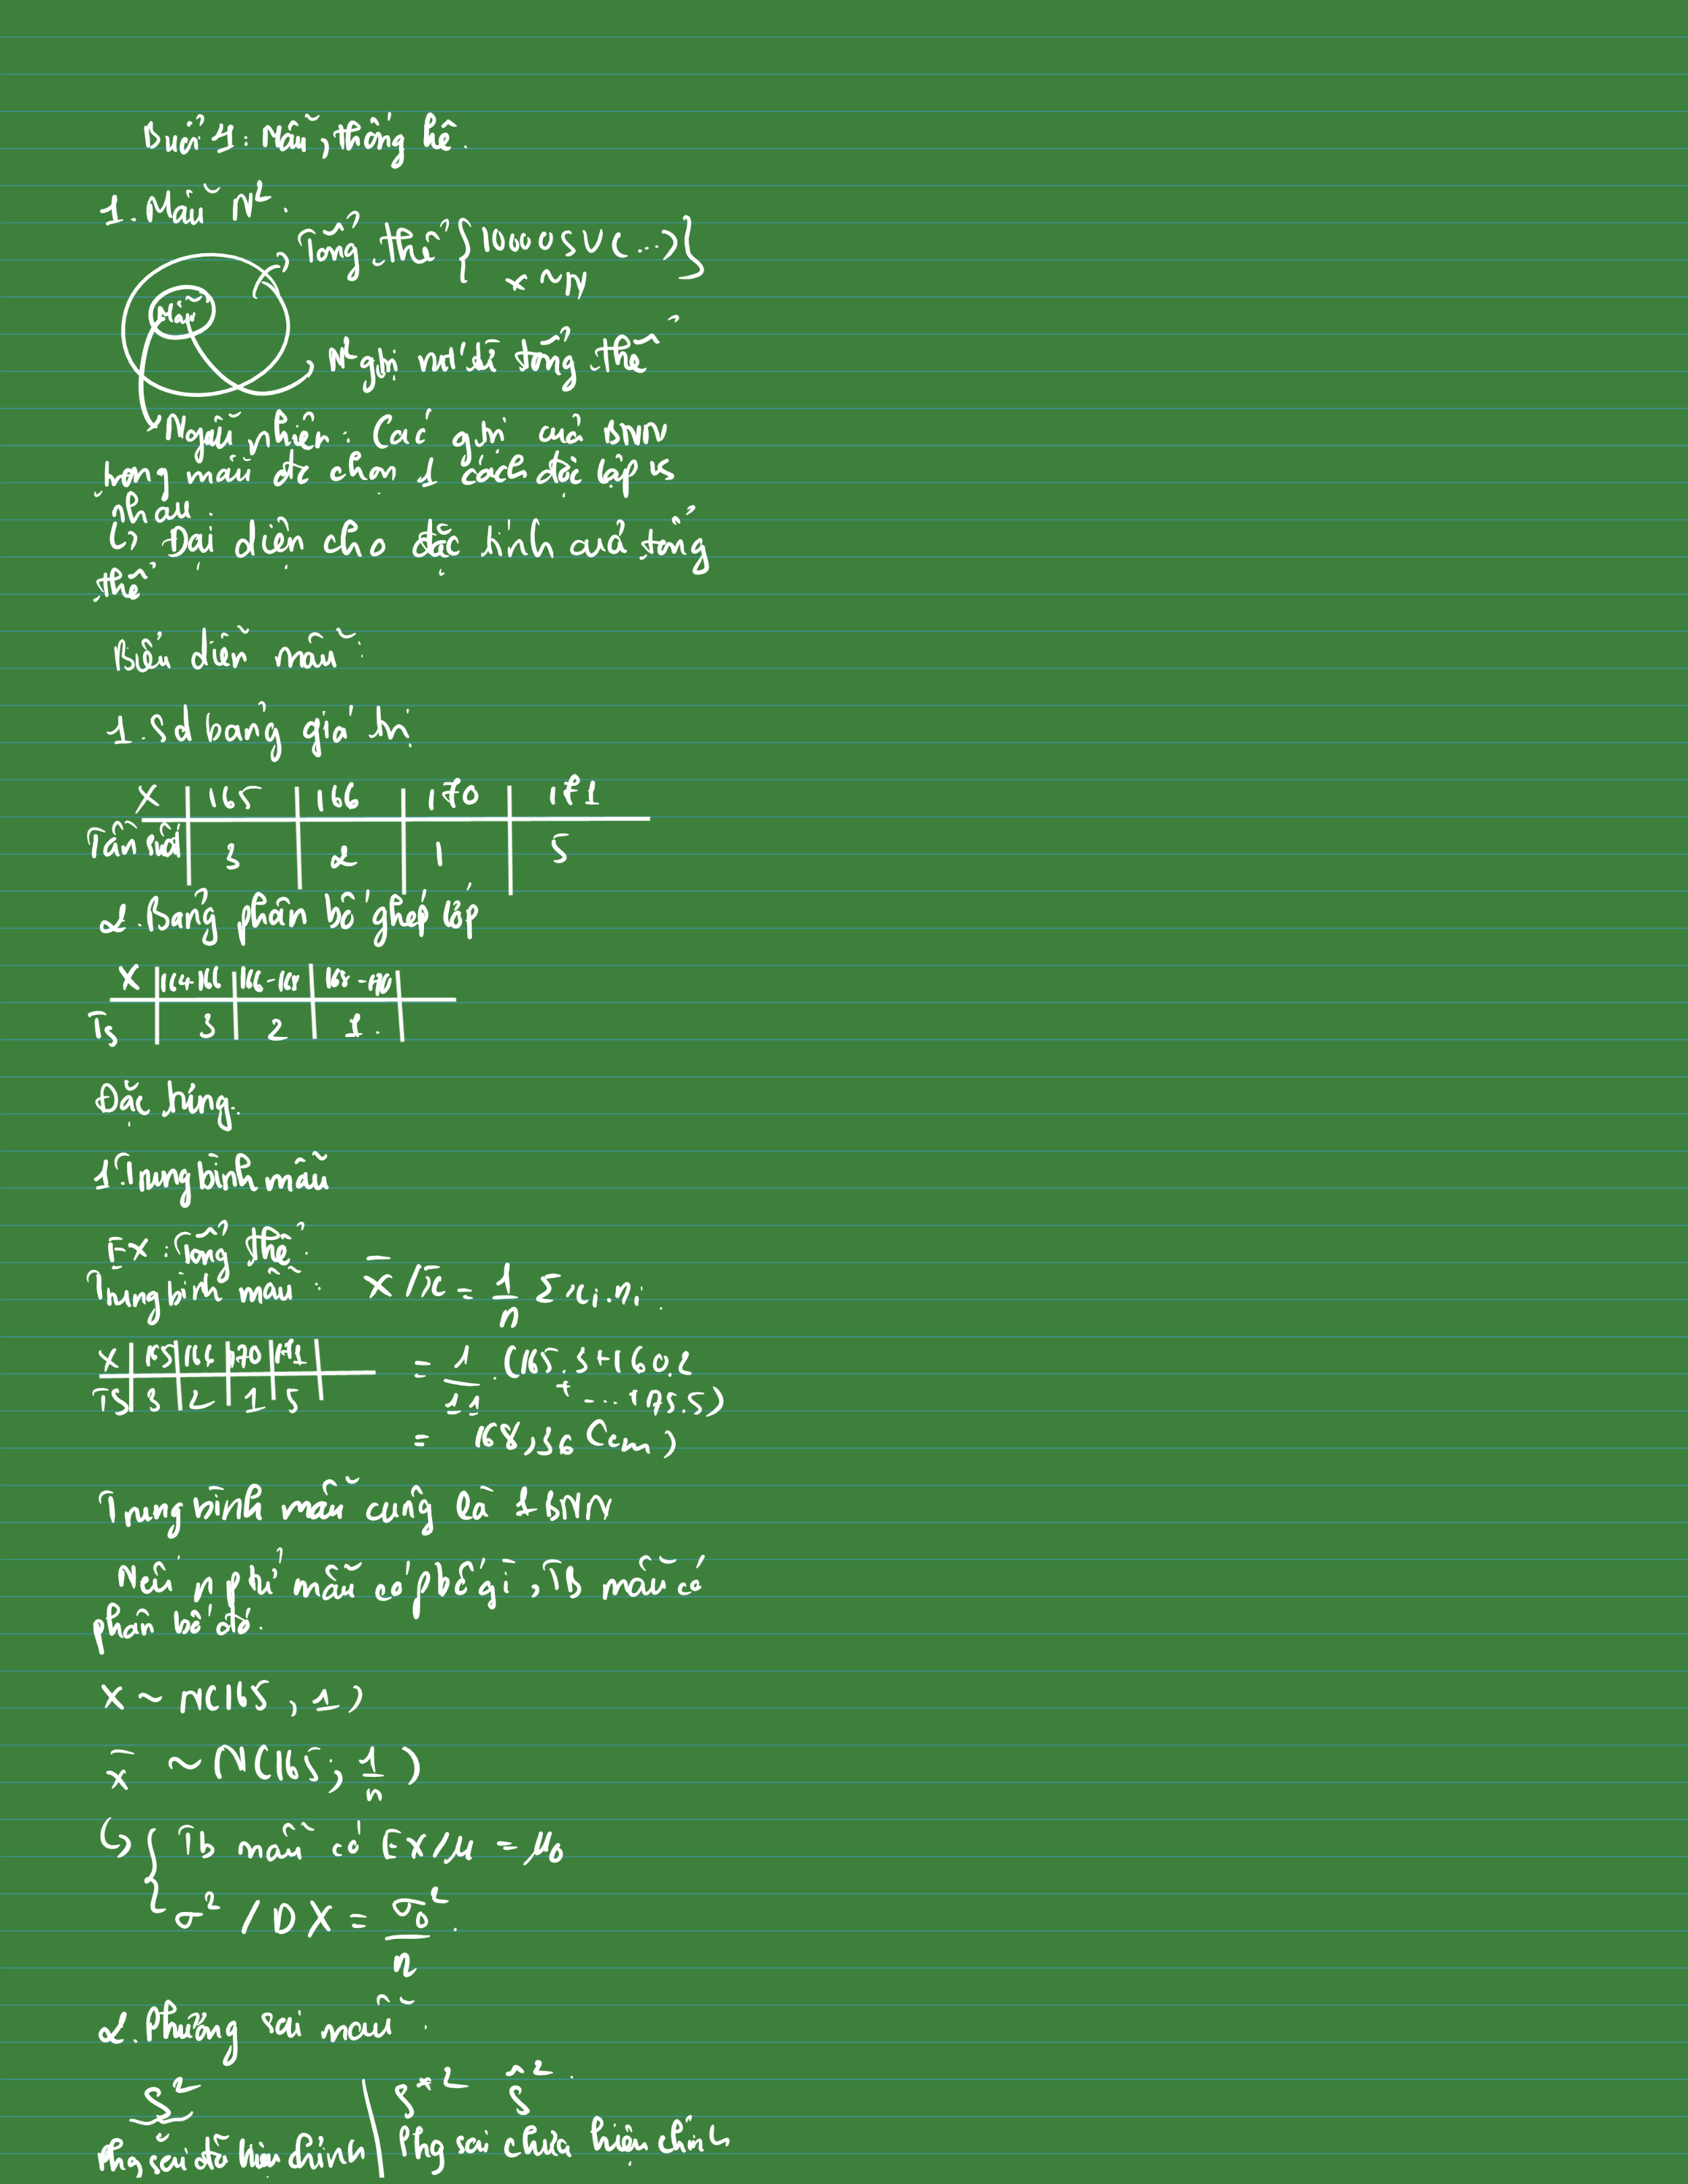 Buổi 1: Mẫu, thống kê.
1. Mẫu N².
Tổng thể {10000 SV (...)}
X ~ N
Mẫu
N² gtrị nxt về tổng thể
Ngẫu nhiên: Các gtrị của BNN
trong mẫu đc chọn 1 cách độc lập vs
nhau.
↳ Đại diện cho đặc tính của tổng
thể
Biểu diễn mẫu:
1. Sd bảng giá trị
X | 165 | 166 | 170 | 171
Tần suất | 3 | 2 | 1 | 5
2. Bảng phân bố ghép lớp
X | 164-166 | 166-168 | 168-170 |
Ts | 3 | 2 | 1.
Đặc trưng.
1. Trung bình mẫu
EX: Tổng thể.
Trung bình mẫu: X̄ / x̄ = 1/n Σ xi.ni.
X | 165 | 166 | 170 | 171 |
TS | 3 | 2 | 1 | 5
= 1/11 . (165.3+160.2
+ ... +175.5)
= 168,36 (cm)
Trung bình mẫu cũng là 1 BNN
Nếu n ptử mẫu có pbố gì, TB mẫu có
phân bố đó.
X ~ N(165, 1)
x̄ ~ N(165; 1/n)
↳ { Tb mẫu có EX/μ = μ₀
σ² / DX = σ₀²/n.
2. Phương sai mẫu.
S² | S*² Ŝ².
Phg sai đã hiệu chỉnh | Phg sai chưa hiệu chỉnh